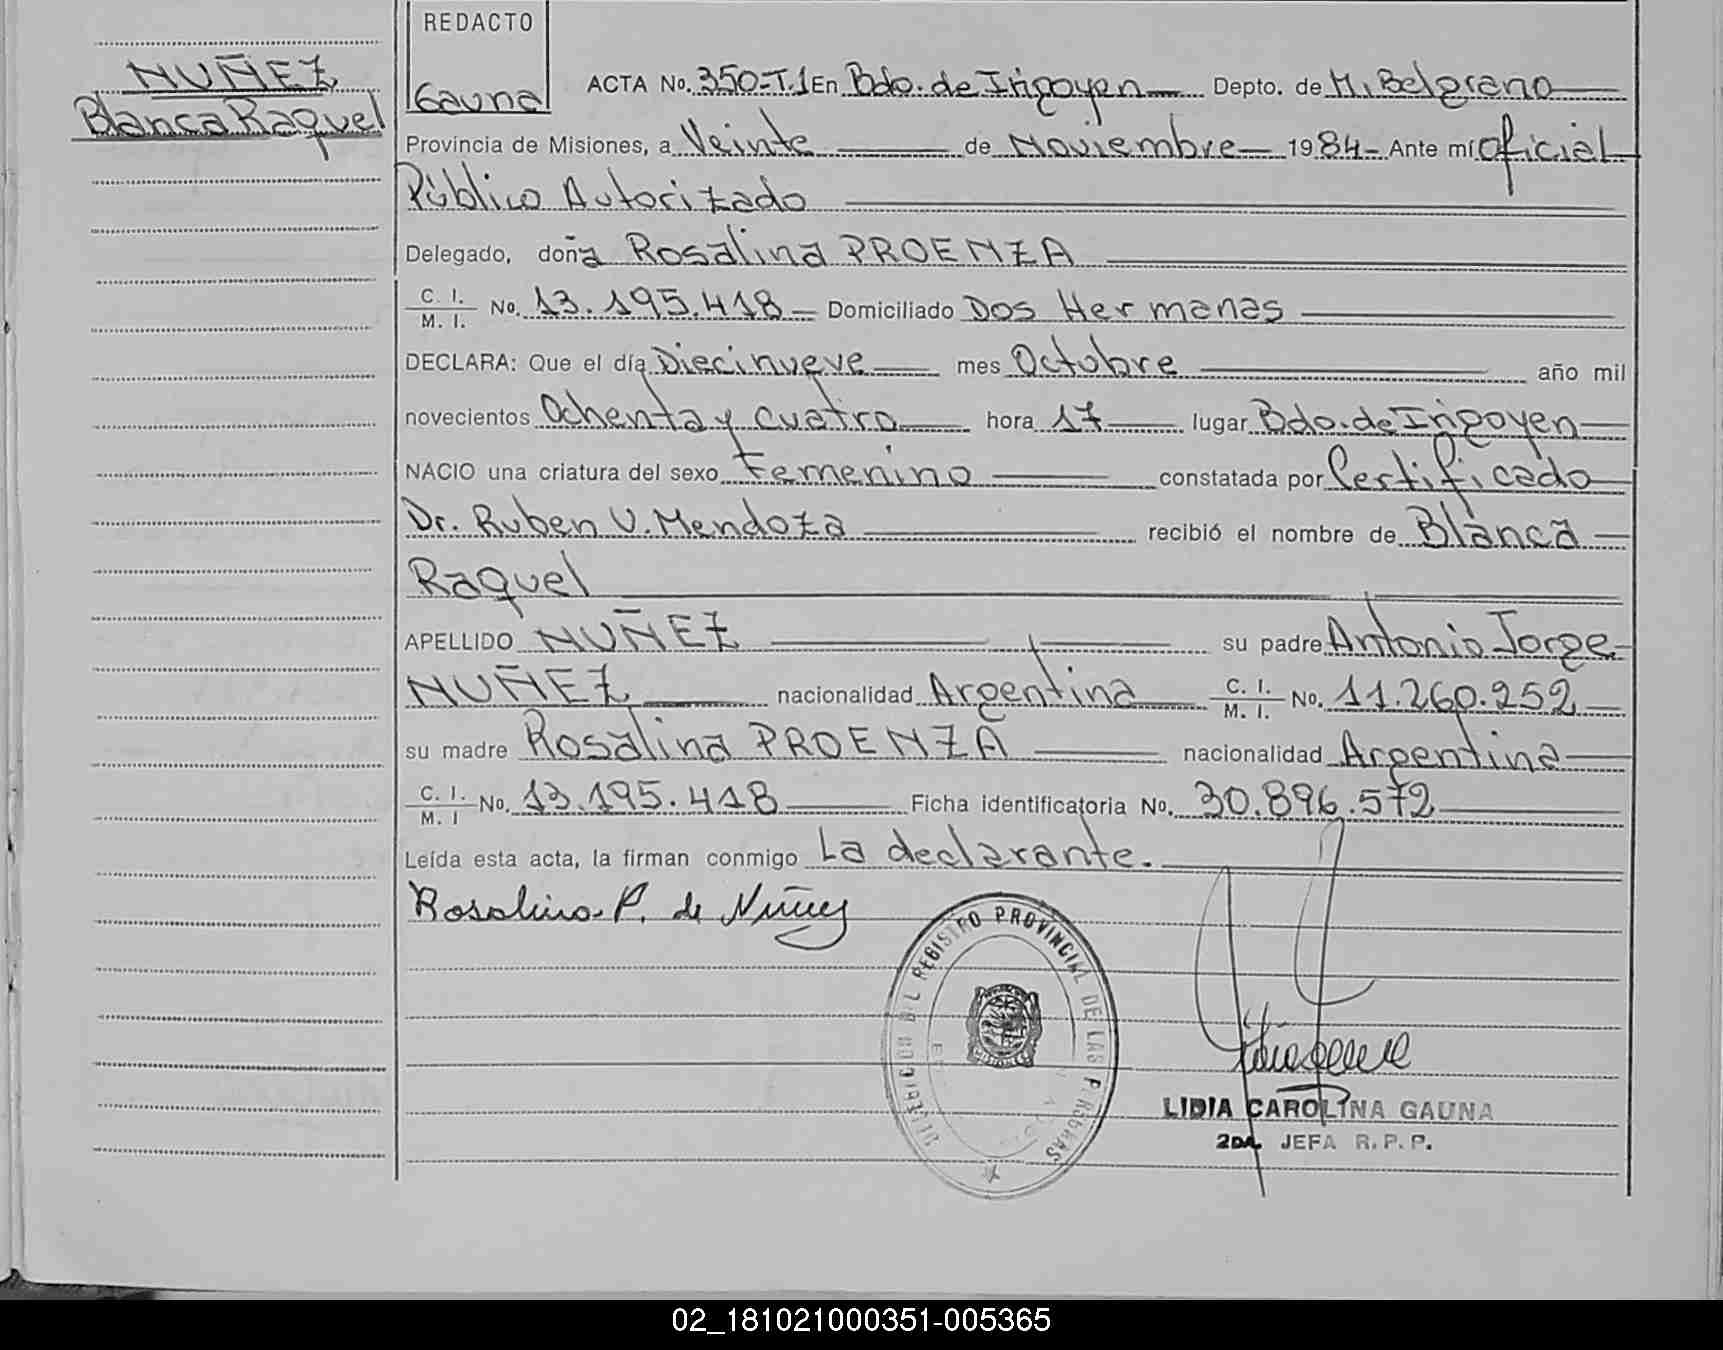 REDACTO
Gauna
NUÑEZ
Blanca Raquel
ACTA No. 350-T.1 En Bdo. de Irigoyen Depto. de M. Belgrano
Provincia de Misiones, a Veinte de Noviembre 1984 - Ante mí oficial
Público Autorizado
Delegado, doña Rosalina PROENZA
C. I. / M. I. No. 13.195.418 Domiciliado Dos Hermanas
DECLARA: Que el día Diecinueve mes Octubre año mil
novecientos Ochenta y cuatro hora 17 lugar Bdo. de Irigoyen
NACIO una criatura del sexo Femenino constatada por Certificado
Dr. Ruben V. Mendoza recibió el nombre de Blanca
Raquel
APELLIDO NUÑEZ su padre Antonio Jorge
NUÑEZ nacionalidad Argentina C. I. / M. I. No. 11.260.252
su madre Rosalina PROENZA nacionalidad Argentina
C. I. / M. I No. 13.195.418 Ficha identificatoria No. 30.896.572
Leída esta acta, la firman conmigo La declarante.
Rosalina P. de Nuñez
REGISTRO PROVINCIAL DE LAS PERSONAS
LIDIA CAROLINA GAUNA
2DA. JEFA R. P. P.
02_181021000351-005365